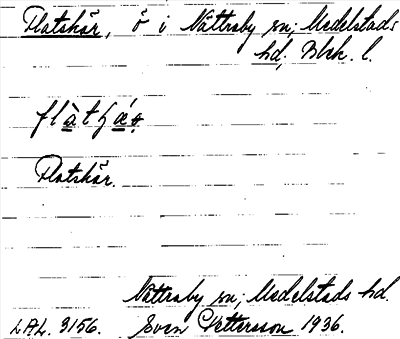 Flatskär, ö i Nättraby sn; Medelstads
hd, Blek. l.
Flatskär.
Nättraby sn; Medelstads hd.
LAL. 3156. Sven Pettersson 1936.